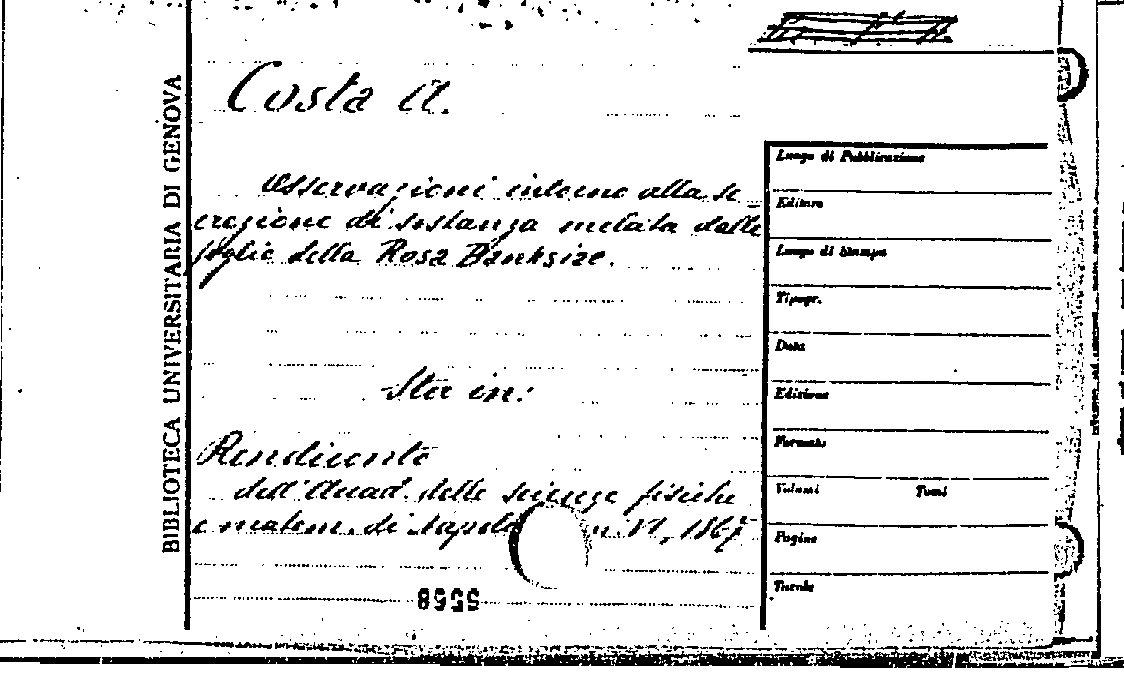 BIBLIOTECA UNIVERSITARIA DI GENOVA
Costa A.
Osservazioni intorno alla se-
crezione di sostanza melata dalle
foglie della Rosa Banksiae.
Sta in:
Rendiconto
dell'Accad. delle scienze fisiche
e matem. di Napoli n. VI, 1867
5558
Luogo di Pubblicazione
Editore
Luogo di Stampa
Tipogr.
Data
Edizione
Formato
Volumi Tomi
Pagine
Tavole